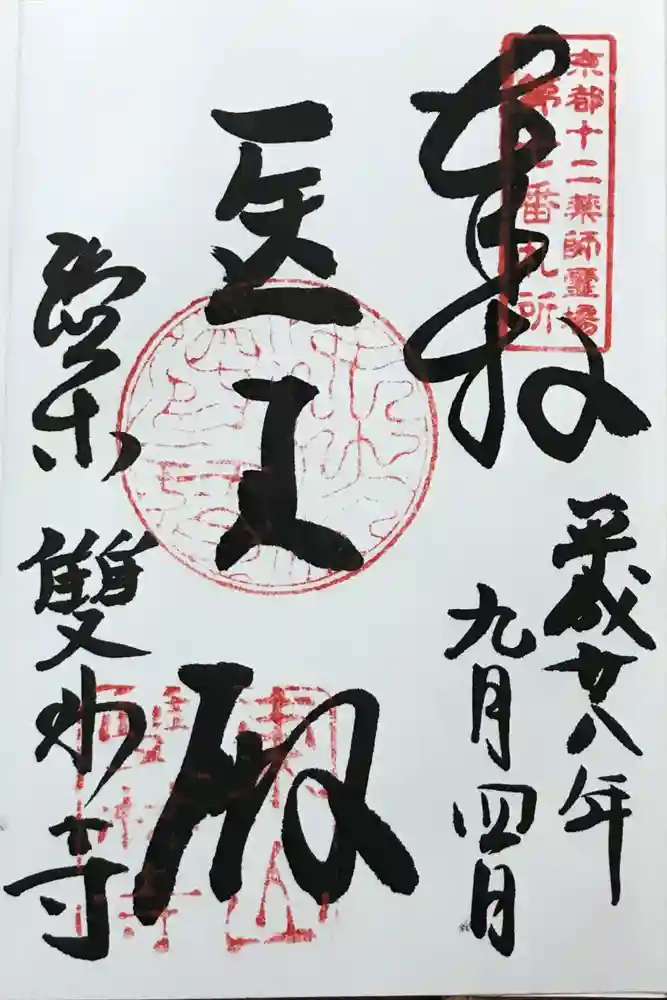 京都十二薬師靈場
第七番札所
奉拝
平成廿八年
九月四日
医王殿
雙林寺
東山
雙林寺